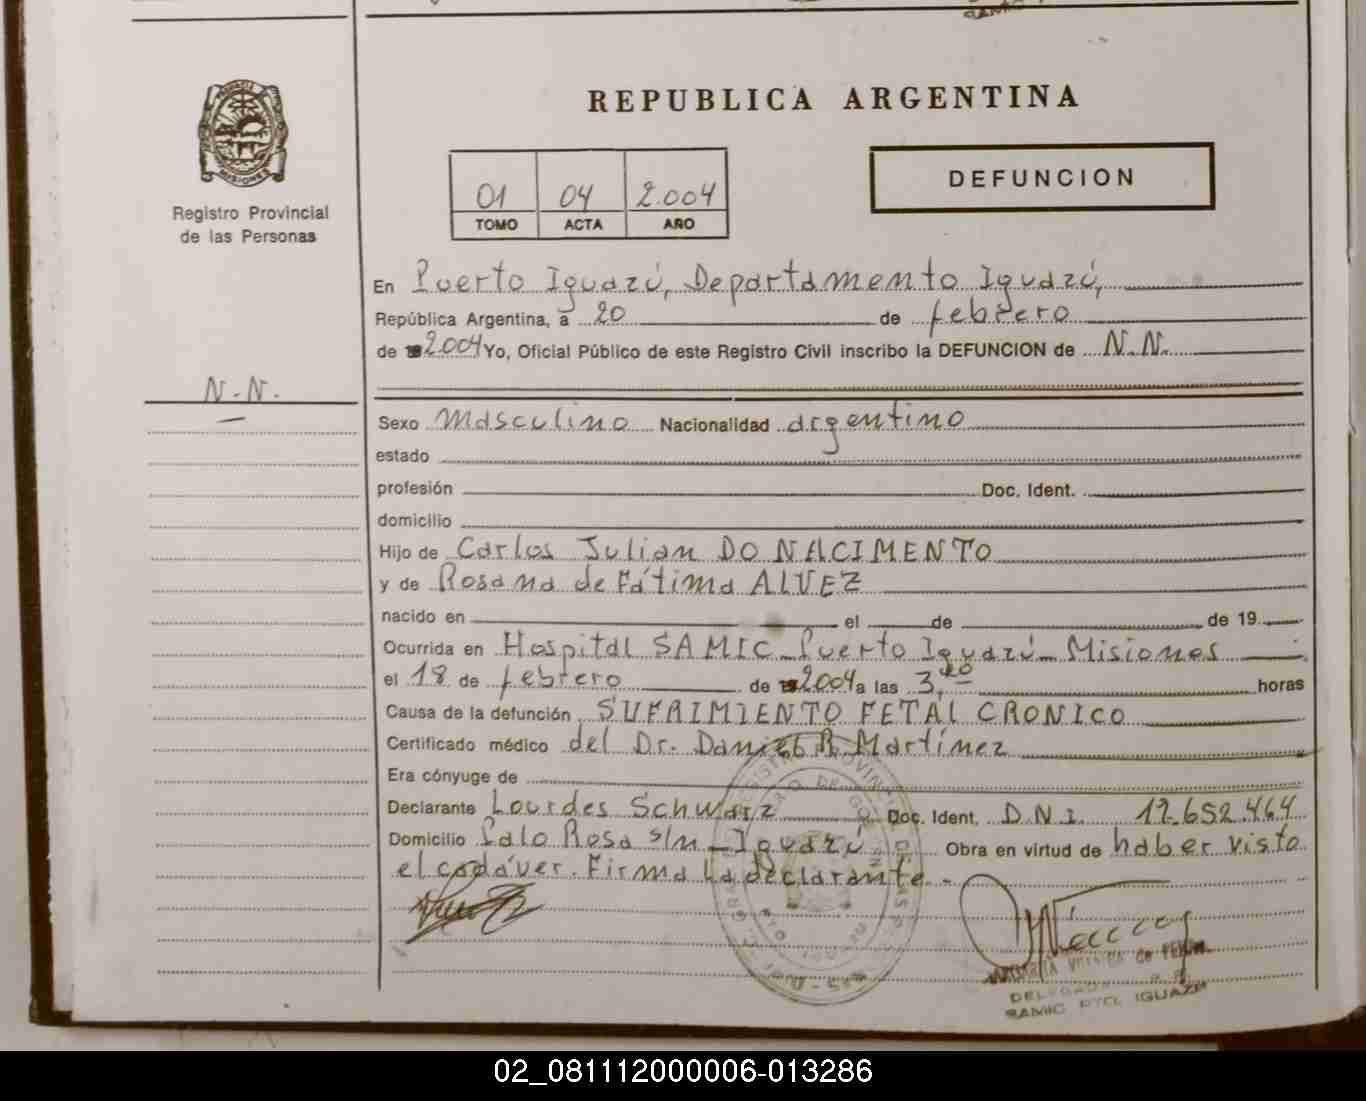 REPUBLICA ARGENTINA
PROVINCIA DE
MISIONES
Registro Provincial
de las Personas
01 04 2.004
TOMO ACTA AÑO
DEFUNCION
En Puerto Iguazú, Departamento Iguazú,
República Argentina, a 20 de febrero
de 2004 Yo, Oficial Público de este Registro Civil inscribo la DEFUNCION de N.N.
N.N.
Sexo masculino Nacionalidad argentino
estado
profesión Doc. Ident.
domicilio
Hijo de Carlos Julian DO NACIMENTO
y de Rosana de Fátima ALVEZ
nacido en el de de 19
Ocurrida en Hospital SAMIC_Puerto Iguazú_Misiones
el 18 de febrero de 2004 a las 3,40 horas
Causa de la defunción SUFRIMIENTO FETAL CRONICO
Certificado médico del Dr. Daniel R. Martínez
Era cónyuge de
Declarante Lourdes Schwarz Doc. Ident. D.N.I. 17.652.464
Domicilio Palo Rosa s/n_Iguazú Obra en virtud de haber visto
el cadáver. Firma la declarante.-
SAMIC PTO. IGUAZU
02_081112000006-013286